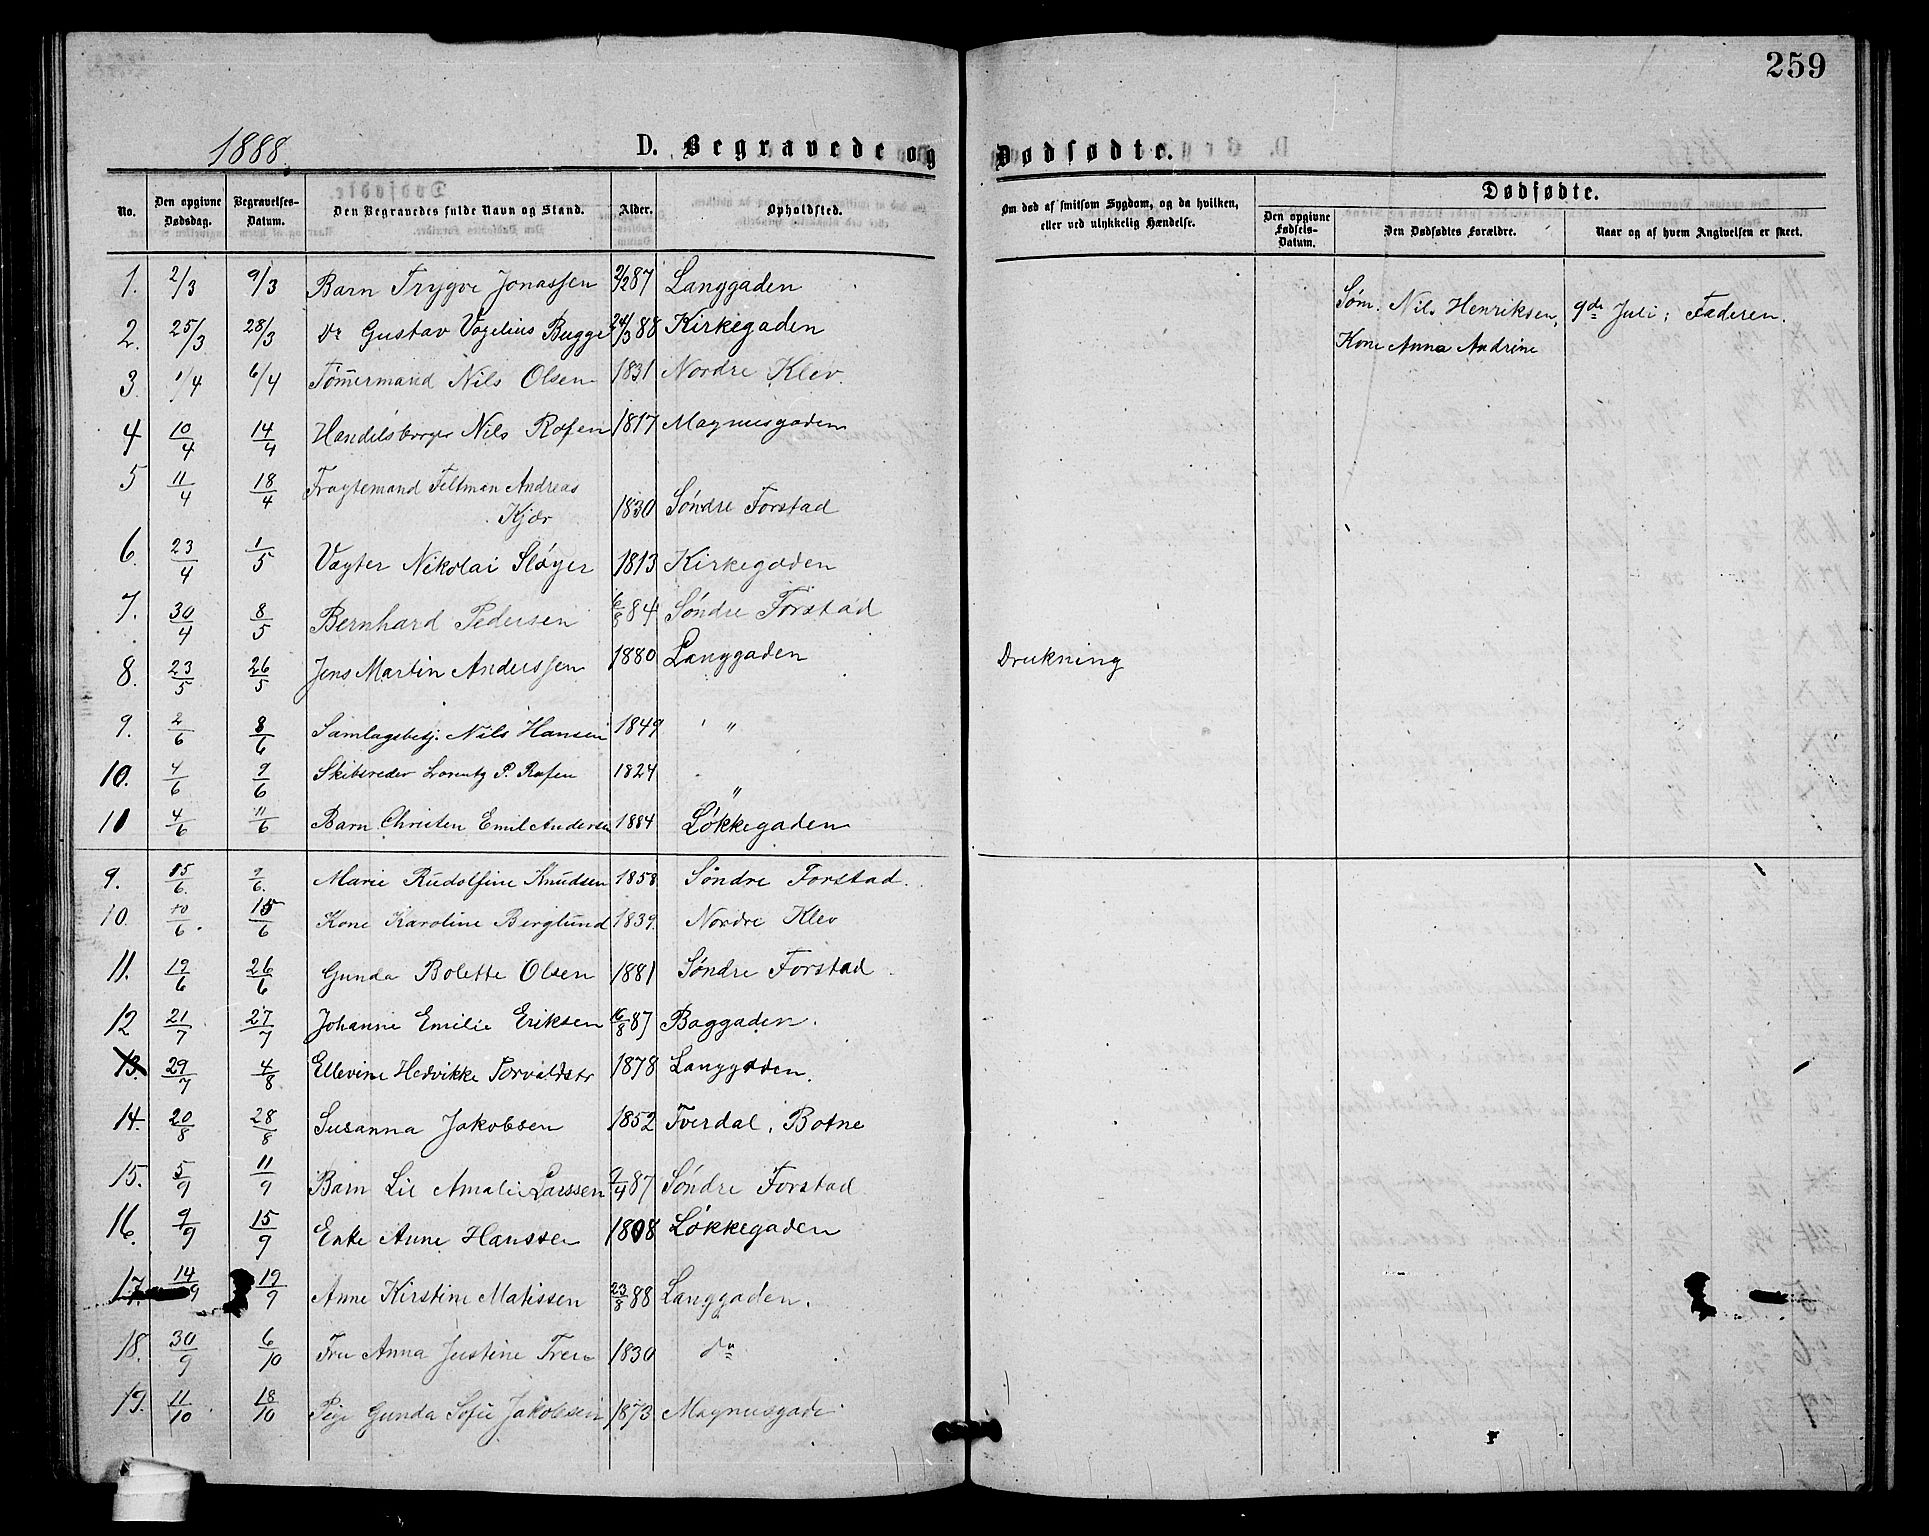 259
1888.
D. Begravede og Dødfødte.
Dødfødte.
No. Den opgivne Dødsdag. Begravelses-Datum. Den Begravedes fulde Navn og Stand. Alder. Opholdsted. Om død af smitsom Sygdom, og da hvilken, eller ved ulykkelig Hændelse. Den opgivne Fødsels-Datum. Den Dødfødtes Forældre. Naar og af hvem Angivelsen er skeet.
1. 2/3 9/3 Barn Trygve Jonassen 2/2 87 Langgaden
Søm. Nils Henriksen, 9de Juli; Faderen.
Kone Anna Andrine
2. 25/3 28/3 do Gustav Vogelius Bugge 24/3 88 Kirkegaden
3. 1/4 6/4 Tømermand Nils Olsen 1831 Nordre Klev.
4 10/4 14/4 Handelsborger Nils Rafen 1817 Magnusgaden
5 11/4 18/4 Fragtemand Feltman Andreas
Kjær 1830 Søndre Forstad
6. 23/4 1/5 Vægter Nikolai Sløyer 1813 Kirkegaden
7. 30/4 8/5 Bernhard Pedersen 84 Søndre Forstad
8. 23/5 26/5 Jens Martin Anderssen 1880 Langgaden Drukning
9. 2/6 8/6 Samlagsbestj. Nils Hansen 1849 "
10. 4/6 9/6 Skibsreder Lorentz P. Rafen 1824 "
11 4/6 11/6 Barn Christen Emil Andersen 1884 Løkkegaden
9. 6. Marie Rudolfine Knudsen 1858 Søndre Forstad.
10. 10/6. 15/6 Kone Karoline Berglund 1839. Nordre Klev
11. 19/6 26/6 Gunda Bolette Olsen 1881 Søndre Forstad
12 21/7 27/7 Johanne Emilie Eriksen 16/8 87 Baggaden.
13. 29/7 4/8 Ellevine Hedvikke Torvaldsdtr 1878 Langgaden.
14. 20/8 28/8 Susanna Jakobsen 1852 Tverdal, Botne
15. 5/9 11/9 Barn Lil Amalie Larssen 9/4 87 Søndre Forstad
16. 9/9 15/9 Enke Anne Hanssen 1808 Løkkegaden
17. 14/9 19/9 Anne Kirstine Matissen 23/8 88 Langgaden.
18. 30/9 6/10 Fru Anna Justine 1830 do
19. 11/10 18/10 Pige Gunda Sofie Jakobsen 1873 Magnusgade